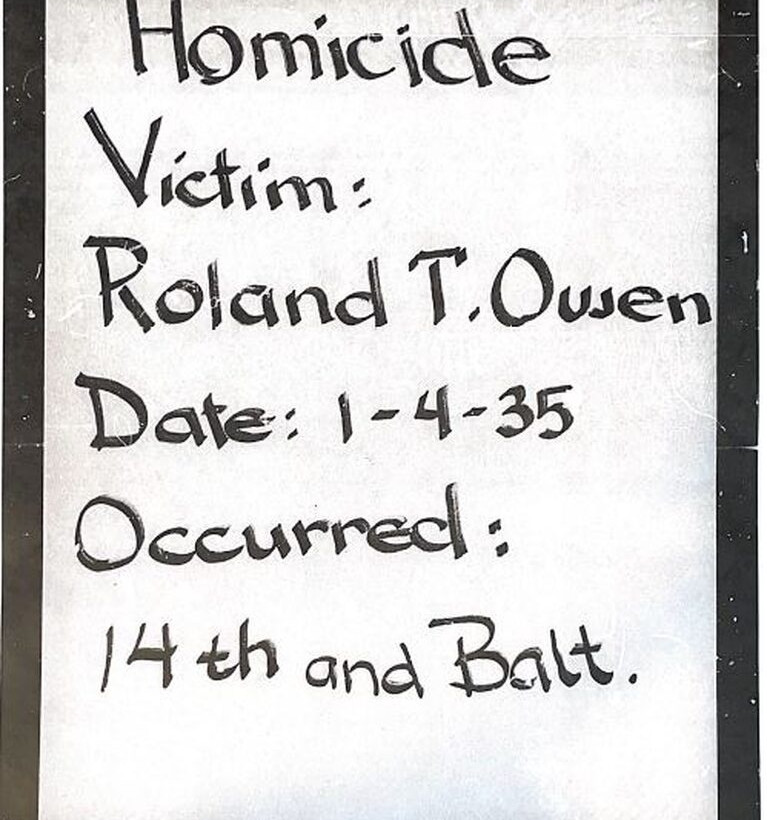 Homicide
Victim:
Roland T. Owen
Date: 1-4-35
Occurred:
14th and Balt.